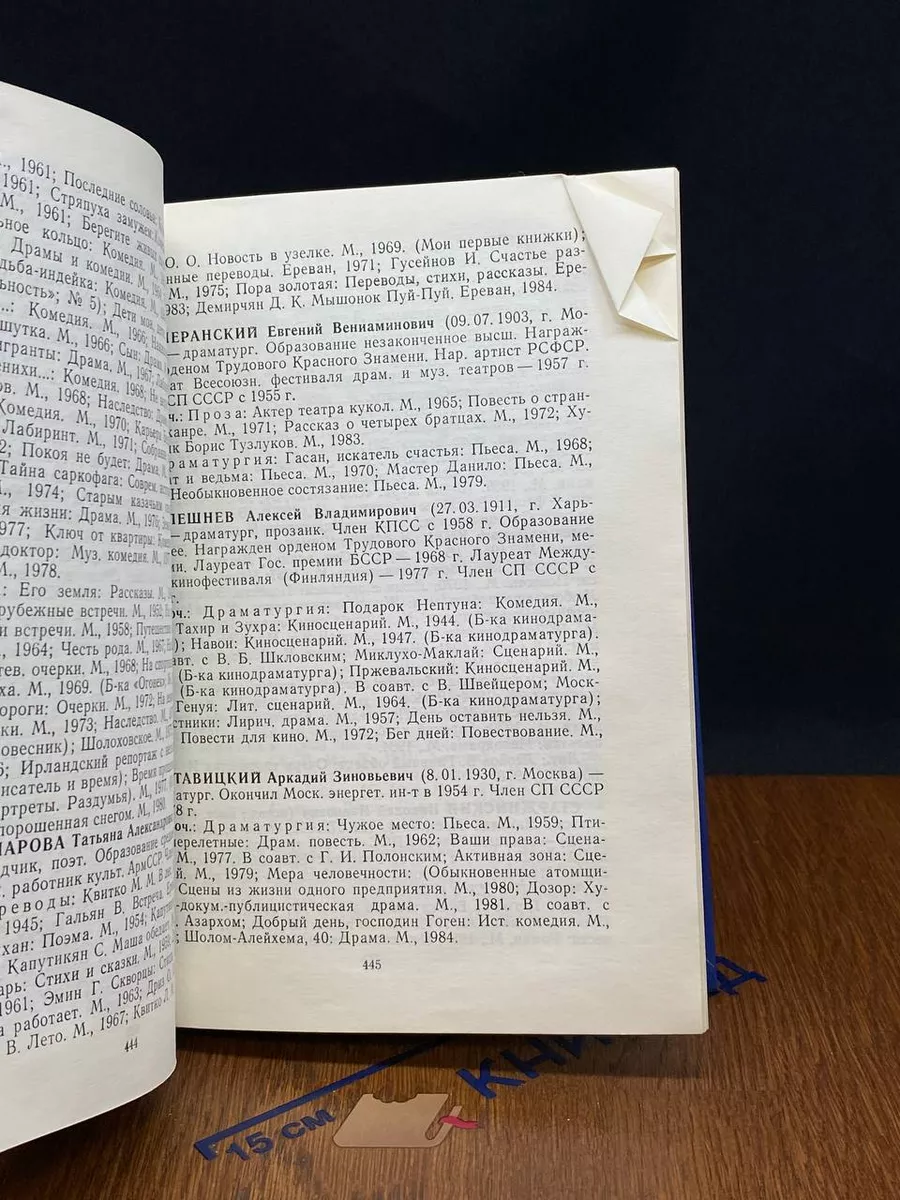 ., 1961; Последние соловьи:
1961; Стряпуха замужем:
М., 1961; Берегите живых
ьное кольцо: Комедия. М.,
Драмы и комедии. М.,
дьба-индейка: Комедия. М.,
льность»; № 5); Дети мои,
..: Комедия. М., 1966;
шутка. М., 1966; Сын: Драма.
игранты: Драма, М., 1967;
енихи...: Комедия. 1968; Не
ов. М., 1968; Наследство:
Комедия. М., 1970; Карьера
Лабиринт. М., 1971; Собрание
2; Покоя не будет: Драма. М.,
Тайна саркофага: Соврем.
М., 1974; Старым казачьим
я жизни: Драма. М., 1976;
977; Ключ от квартиры:
доктор: Муз. комедия. М.,
М., 1978.
.: Его земля: Рассказы. М.,
рубежные встречи. М., 1952;
и встречи. М., 1958; Путешествие
, 1964; Честь рода. М., 1967;
гев. очерки. М., 1968; На
ха. М., 1969. (Б-ка «Огонек»,
ороги: Очерки. М., 1972;
ки. М., 1973; Наследство. М.,
ловесник); Шолоховское. М.,
6; Ирландский репортаж с
исатель и время); Время
ортреты. Раздумья). М., 1977,
порошенная снегом. М., 1980.
МАРОВА Татьяна Александровна
дчик, поэт. Образование
. работник культ. АрмССР.
реводы: Квитко М. М. В
1945; Гальян В. Встреча.
хан: Поэма. М., 1954;
Капутикян С. Маша обедает.
арь: Стихи и сказки. М.,
1961; Эмин Г. Скворцы:
а работает. М., 1963; Дриз О.
В. Лето. М., 1967; Квитко Л.
444
О. О. Новость в узелке. М., 1969. (Мои первые книжки);
нные переводы. Ереван, 1971; Гусейнов И. Счастье раз-
М., 1975; Пора золотая: Переводы, стихи, рассказы. Ере-
983; Демирчян Д. К. Мышонок Пуй-Пуй. Ереван, 1984.
ПЕРАНСКИЙ Евгений Вениаминович (09.07.1903, г. Мо-
— драматург. Образование незаконченное высш. Награж-
рденом Трудового Красного Знамени. Нар. артист РСФСР.
ат Всесоюзн. фестиваля драм. и муз. театров — 1957 г.
СП СССР с 1955 г.
ч.: Проза: Актер театра кукол. М., 1965; Повесть о стран-
жанре. М., 1971; Рассказ о четырех братцах. М., 1972; Ху-
ик Борис Тузлуков. М., 1983.
раматургия: Гасан, искатель счастья: Пьеса. М., 1968;
ат и ведьма: Пьеса. М., 1970; Мастер Данило: Пьеса. М.,
Необыкновенное состязание: Пьеса. М., 1979.
ПЕШНЕВ Алексей Владимирович (27.03.1911, г. Харь-
— драматург, прозаик. Член КПСС с 1958 г. Образование
ее. Награжден орденом Трудового Красного Знамени, ме-
и. Лауреат Гос. премии БССР — 1968 г. Лауреат Между-
кинофестиваля (Финляндия) — 1977 г. Член СП СССР с
г.
оч.: Драматургия: Подарок Нептуна: Комедия. М.,
Тахир и Зухра: Киносценарий. М., 1944. (Б-ка кинодрама-
); Навои: Киносценарий. М., 1947. (Б-ка кинодраматурга).
авт. с В. Б. Шкловским; Миклухо-Маклай: Сценарий. М.,
(Б-ка кинодраматурга); Пржевальский: Киносценарий. М.,
(Б-ка кинодраматурга). В соавт. с В. Швейцером; Моск-
Генуя: Лит. сценарий. М., 1964. (Б-ка кинодраматурга);
стники: Лирич. драма. М., 1957; День оставить нельзя. М.,
Повести для кино. М., 1972; Бег дней: Повествование. М.,
ТАВИЦКИЙ Аркадий Зиновьевич (8.01.1930, г. Москва) —
матург. Окончил Моск. энергет. ин-т в 1954 г. Член СП СССР
78 г.
оч.: Драматургия: Чужое место: Пьеса. М., 1959; Пти-
ерелетные: Драм. повесть. М., 1962; Ваши права: Сцена-
М., 1977. В соавт. с Г. И. Полонским; Активная зона: Сце-
й. М., 1979; Мера человечности: (Обыкновенные атомщи-
Сцены из жизни одного предприятия. М., 1980; Дозор: Ху-
-докум.-публицистическая драма. М., 1981. В соавт. с
. Азархом; Добрый день, господин Гоген: Ист. комедия. М.,
; Шолом-Алейхема, 40: Драма. М., 1984.
445
15 см